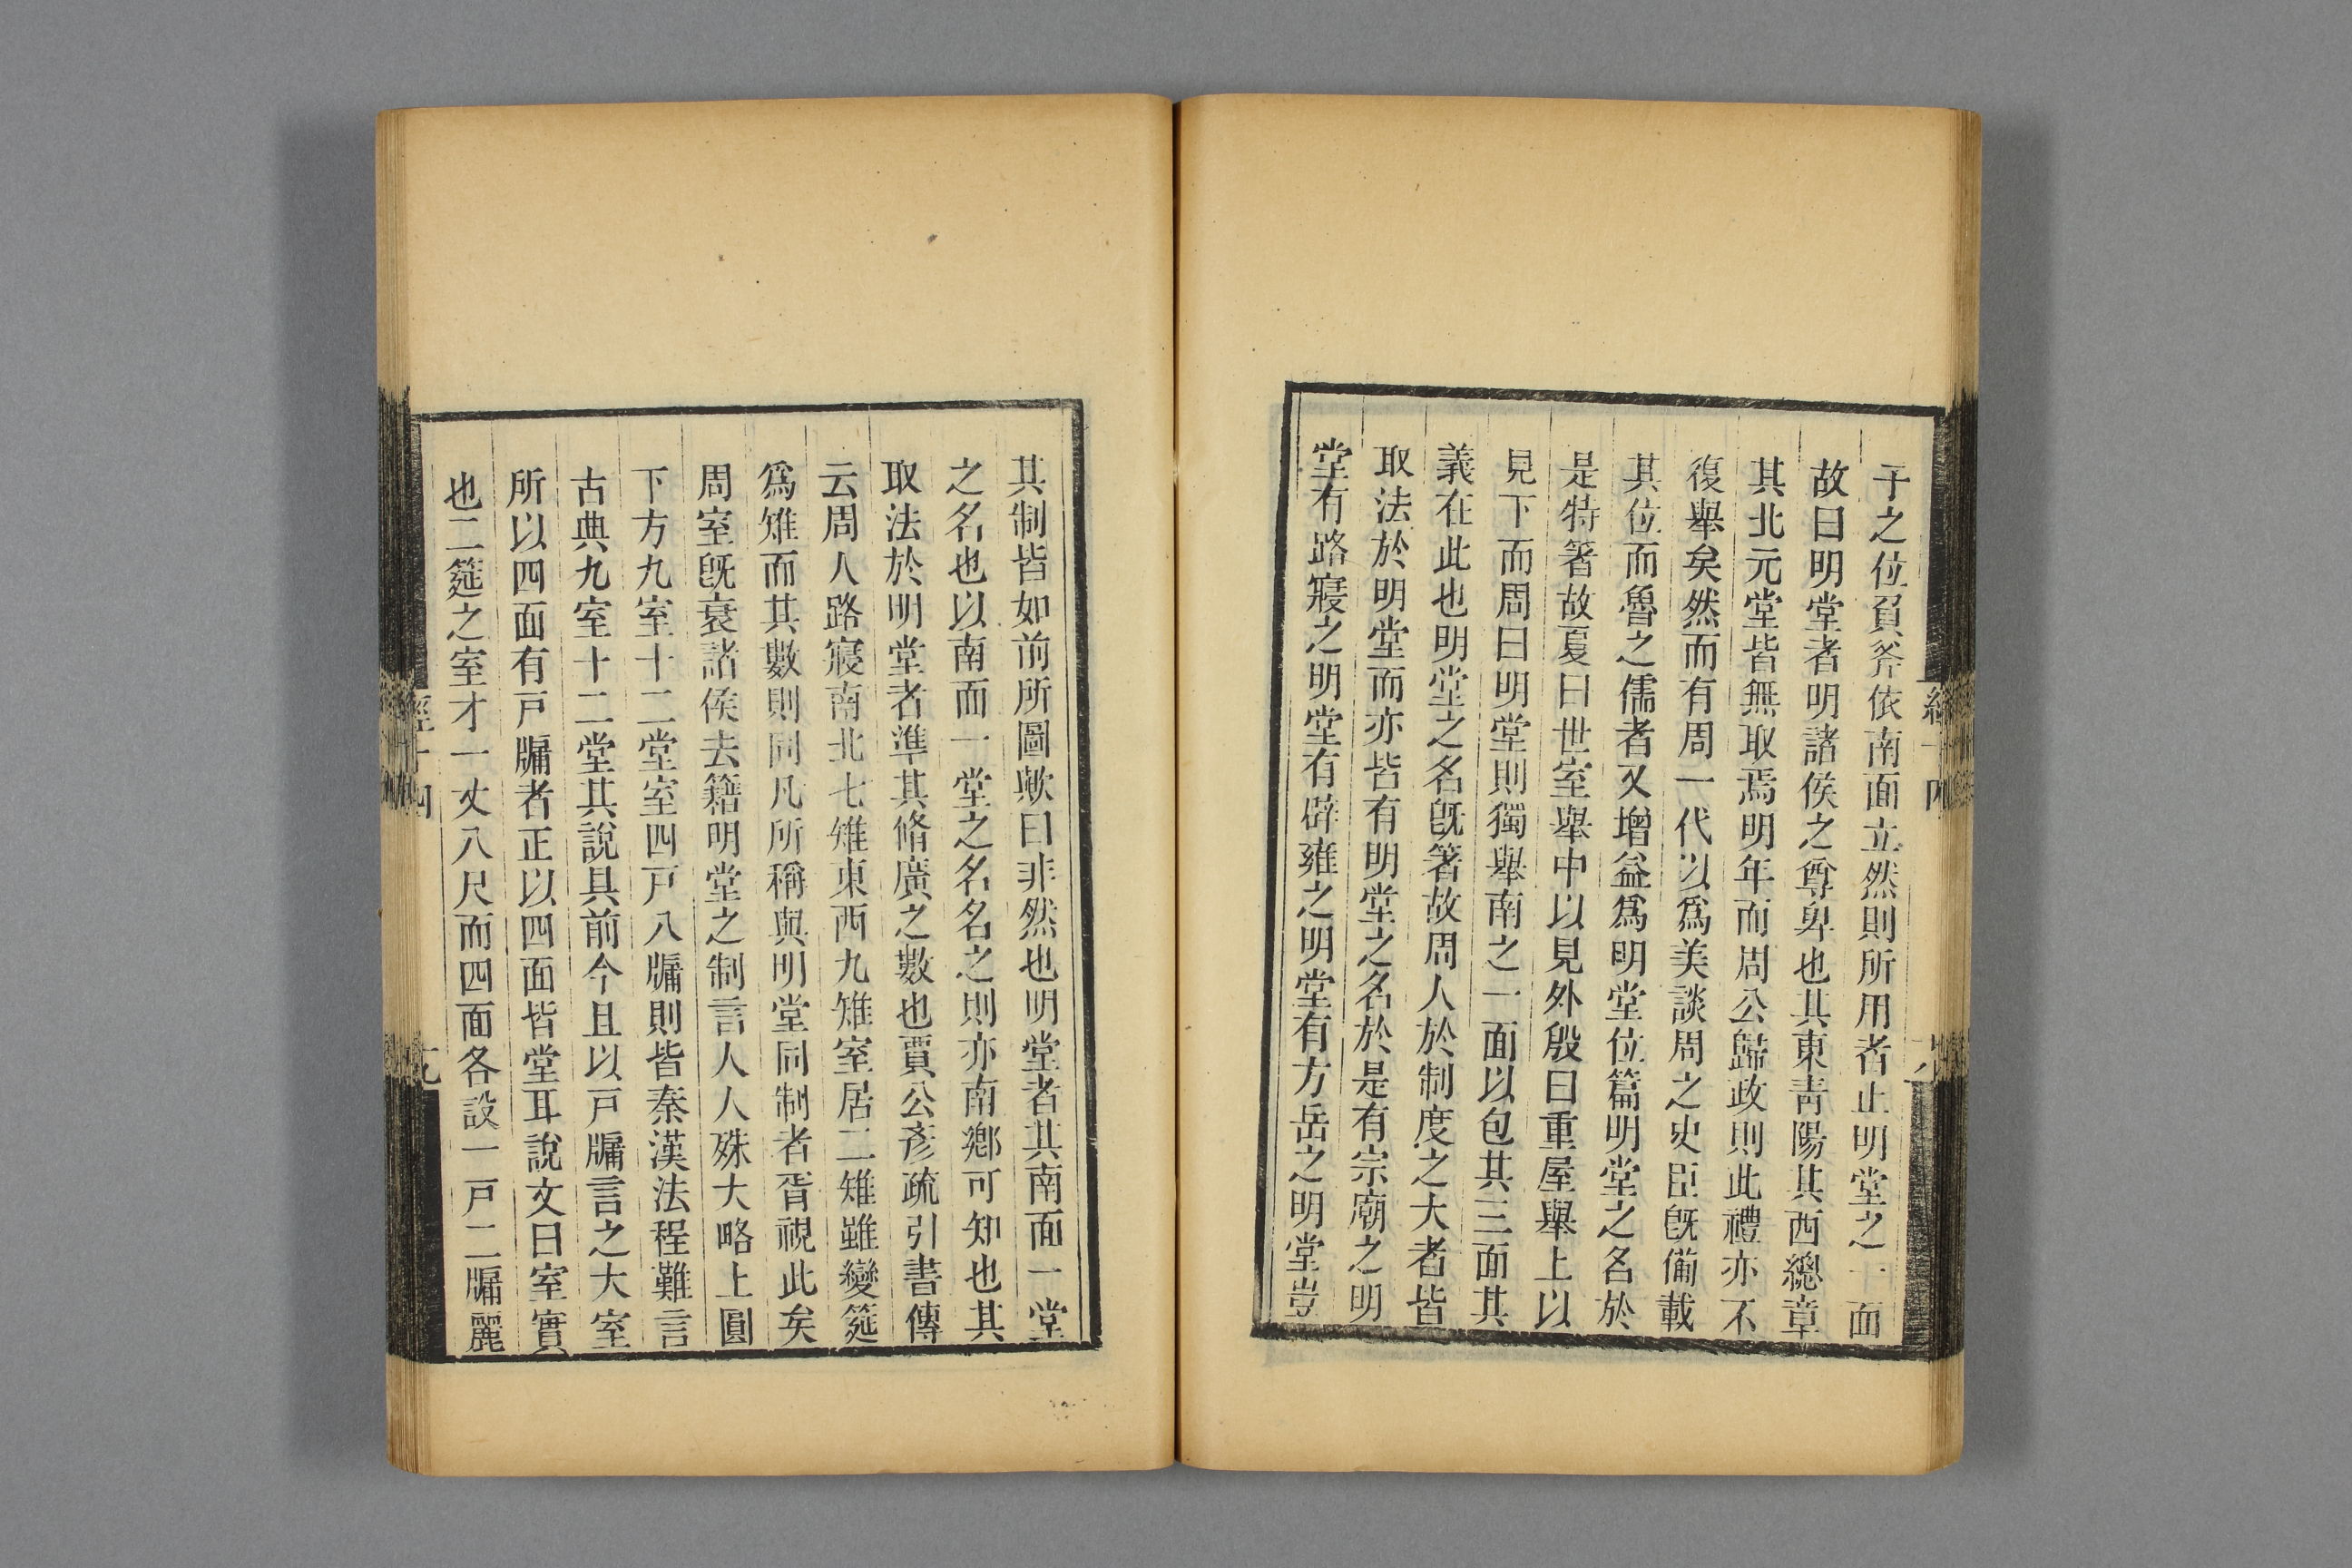 子之位負斧依南面立然則所用者止明堂之一面
故曰明堂者明諸侯之尊卑也其東靑陽其西總章
其北元堂皆無取焉明年而周公歸政則此禮亦不
復舉矣然而有周一代以爲美談周之史臣旣備載
其位而魯之儒者又增益爲明堂位篇明堂之名於
是特箸故夏曰世室舉中以見外殷曰重屋舉上以
見下而周曰明堂則獨舉南之一面以包其三面其
義在此也明堂之名旣箸故周人於制度之大者皆
取法於明堂而亦皆有明堂之名於是有宗廟之明
堂有路寢之明堂有辟雍之明堂有方岳之明堂豈
其制皆如前所圖歟曰非然也明堂者其南面一堂
之名也以南面一堂之名名之則亦南鄕可知也其
取法於明堂者準其脩廣之數也賈公彥疏引書傳
云周人路寢南北七雉東西九雉室居二雉雖變筵
爲雉而其數則同凡所稱與明堂同制者胥視此矣
周室旣衰諸侯去籍明堂之制言人人殊大略上圓
下方九室十二堂室四戸八牖則皆秦漢法程難言
古典九室十二堂其說具前今且以戸牖言之大室
所以四面有戸牖者正以四面皆堂耳說文曰室實
也二筵之室才一丈八尺而四面各設一戸二牖麗
經十四